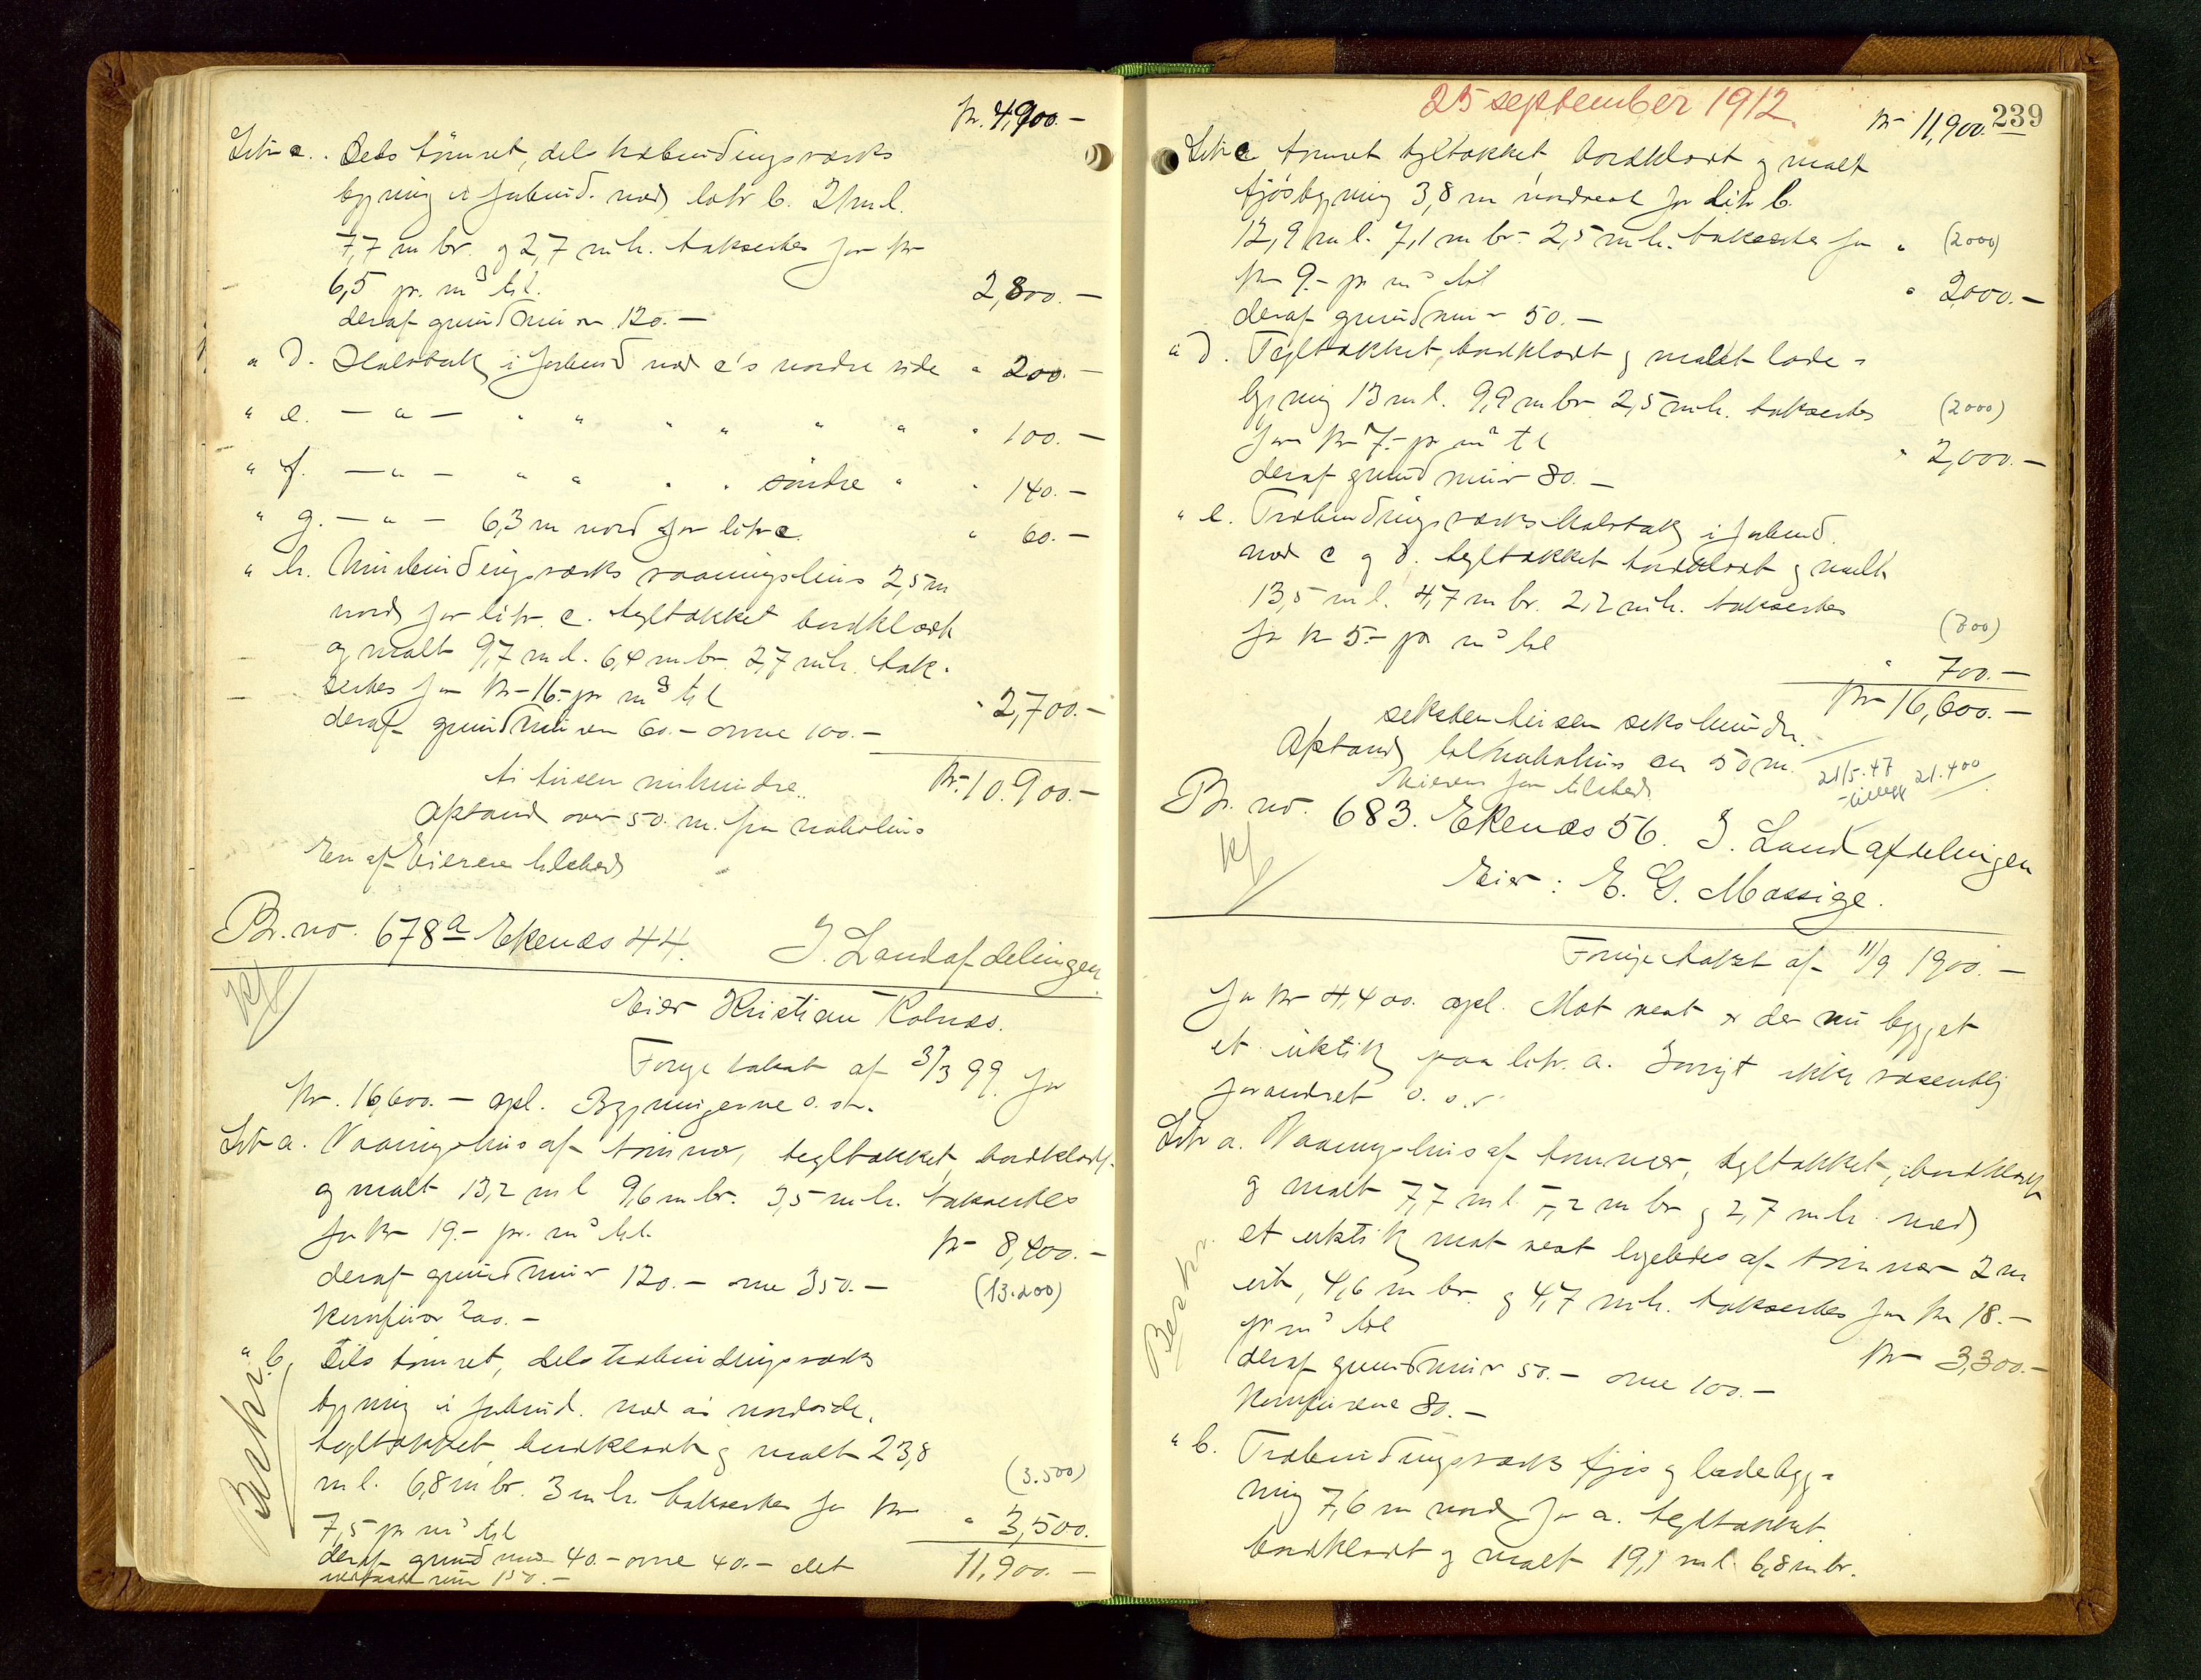 kr. 4,900.-
Litr c. Dels tömret, dels træbindingsværks
bygning i forbind. med litr b. 21 m l.
7,7 m br. og 2,7 m h. takseres for kr
6,5 pr. m³ til
2,800.-
deraf grundmur 120.-
" d. Halvtak i forbind med c's nordre side " 200.-
" e. - " - " " " " " " " 100.-
" f. - " - " " " " söndre " " 140.-
" g. - " - 6,3 m nord for litr c. " 60.-
" h. bindingsværks vaaningshus 2,5 m
nord for litr. c. tegltækket bordklædt
og malt 9,7 m l. 6,4 m br. 2,7 m h. tak-
seres for kr 16.- pr m³ til
" 2,700.-
deraf grundmuren 60.- ovne 100.-
ti tusen nihundre. kr. 10.900.-
Afstand over 50 m. fra nabohus
En af Eierene tilstede
Br. no. 678 a Ekenæs 44. I. Landafdelingen.
Eier Kristian Kolnæs.
Forrige takst af 3/3 99 for
kr. 16,600.- opl. Bygningerne o. s. v.
Litr a. Vaaningshus af tömmer, tegltækket, bordklædt
og malt 13,2 m l 9,6 m br. 3,5 m h. takseres
for kr 19.- pr. m³ til
kr 8,400.-
deraf grundmur 120.- ovne 350.-
(13.200)
Komfur 200.-
" b. Dels tömret, dels træbindingsværks
bygning i forbind. med a's nordside.
tegltækket, bordklædt og malt 23,8
m l. 6,8 m br. 3 m h. takseres for kr
(3.500)
7,5 pr m³ til
" 3,500.
deraf grundmur 40.- ovne 40.- det
11,900.-
mur 150.-
25 september 1912
239
kr 11,900.-
Litr c tömret tegltækket, bordklædt og malt
fjösbygning 3,8 m nordvest for litr b.
12,9 m l. 7,1 m br. 2,5 m h. takseres for
(2000)
kr 9.- pr m³ til
" 2000.-
deraf grundmur 50.-
" d. Tegltækket, bordklædt og malt lade-
bygning 13 m l. 9,9 m br 2,5 m h. takseres
(2000)
for kr 7.- pr m³ til
" 2,000.-
deraf grundmur 80.-
" e. Træbindingsværks halvtak i forbind.
med c og d. tegltækket bordklædt og malt
13,5 m l. 4,7 m br. 2,2 m h. takseres
for kr 5.- pr m³ til
(700)
" 700.-
kr 16,600.-
seksten tusen sekshundre.
Afstand til nabohus ca 50 m.
21/5.47 21.400
Eieren var tilstede
Br. no. 683. Ekenæs 56. I. Landafdelingen
Eier: E. G. Mossige.
Forrige takst af 11/9 1900.-
for kr 4,400. opl. Mot vest er der nu bygget
et utstik paa litr. a. Forrigt ikke væsentlig
forandret o. s. v.
Litr a. Vaaningshus af tömmer, tegltækket, bordklædt
og malt 7,7 m l 7,2 m br og 2,7 m h. med
et utstik mot vest ligeledes af tömmer 2 m
ut, 4,6 m br. og 4,7 m h. takseres for kr 18.-
pr m³ til
kr 3,300.-
deraf grundmur 50.- ovne 100.-
Komfurene 80.-
" b. Træbindingsværks fjös og ladebyg-
ning 7,6 m nord for a. tegltækket
bordklædt og malt 19,1 m l. 6,8 m br.